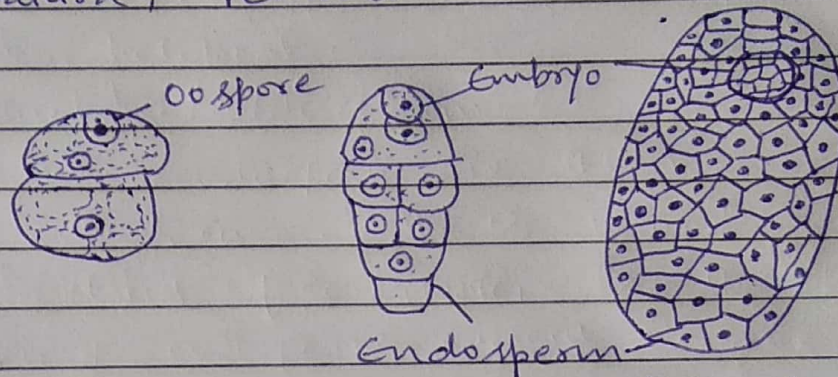 Oospore
Embryo
Endosperm